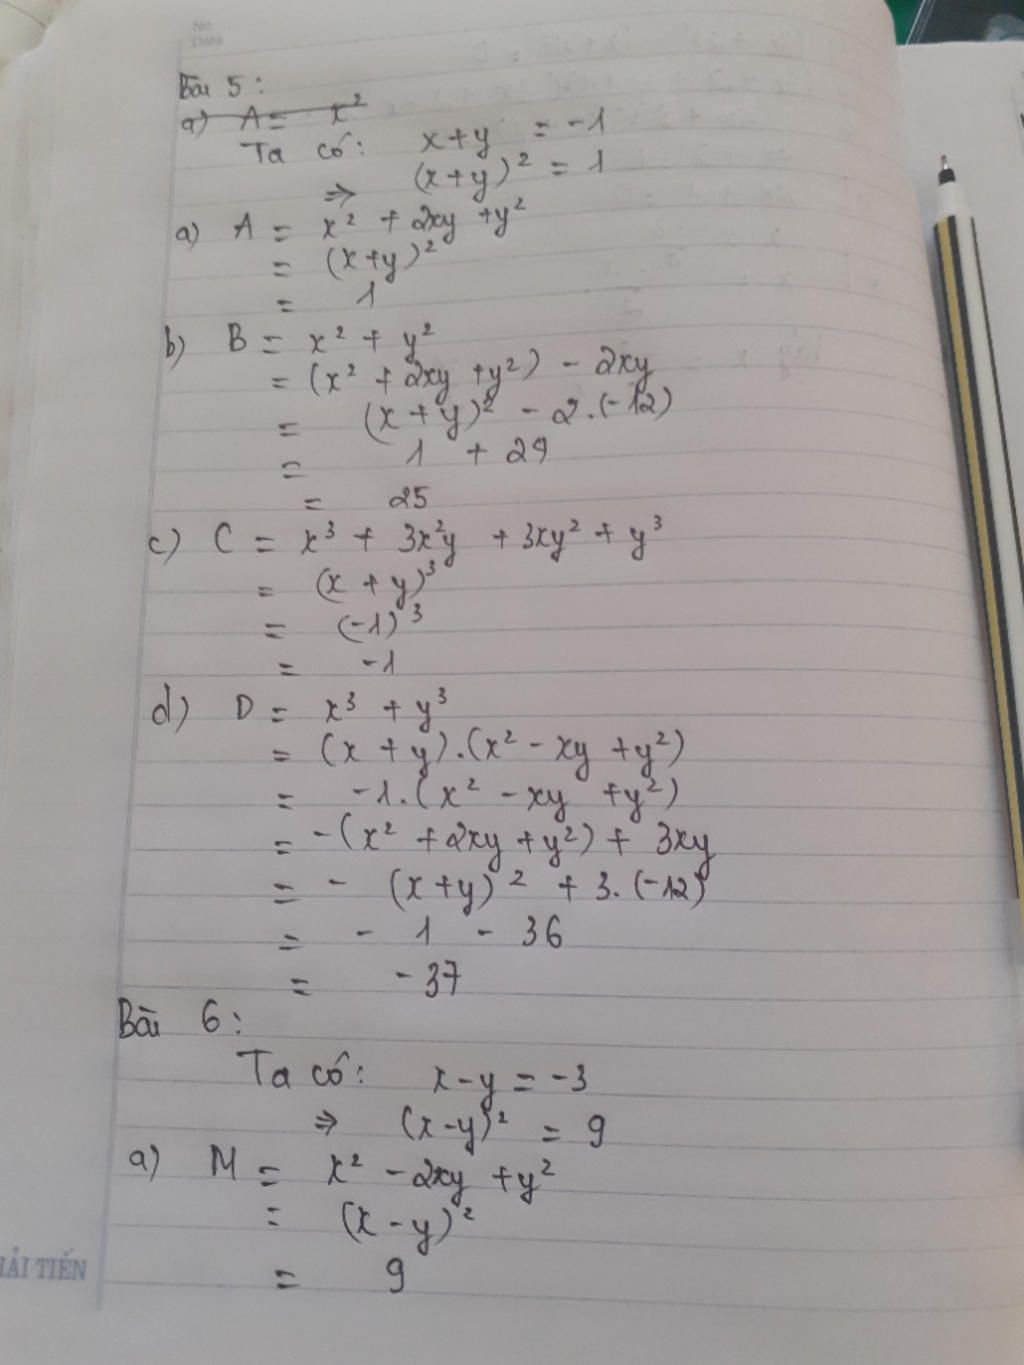 No.
Date
Bài 5:
a) A = x²
Ta có: x+y = -1
⇒ (x+y)² = 1
a) A = x² + 2xy + y²
= (x+y)²
= 1
b) B = x² + y²
= (x² + 2xy + y²) - 2xy
= (x + y)² - 2.(-12)
= 1 + 24
= 25
c) C = x³ + 3x²y + 3xy² + y³
= (x + y)³
= (-1)³
= -1
d) D = x³ + y³
= (x + y).(x² - xy + y²)
= -1.(x² - xy + y²)
= -(x² + 2xy + y²) + 3xy
= - (x+y)² + 3.(-12)
= - 1 - 36
= -37
Bài 6:
Ta có: x-y = -3
⇒ (x-y)² = 9
a) M = x² - 2xy + y²
= (x-y)²
= 9
IẢI TIẾN